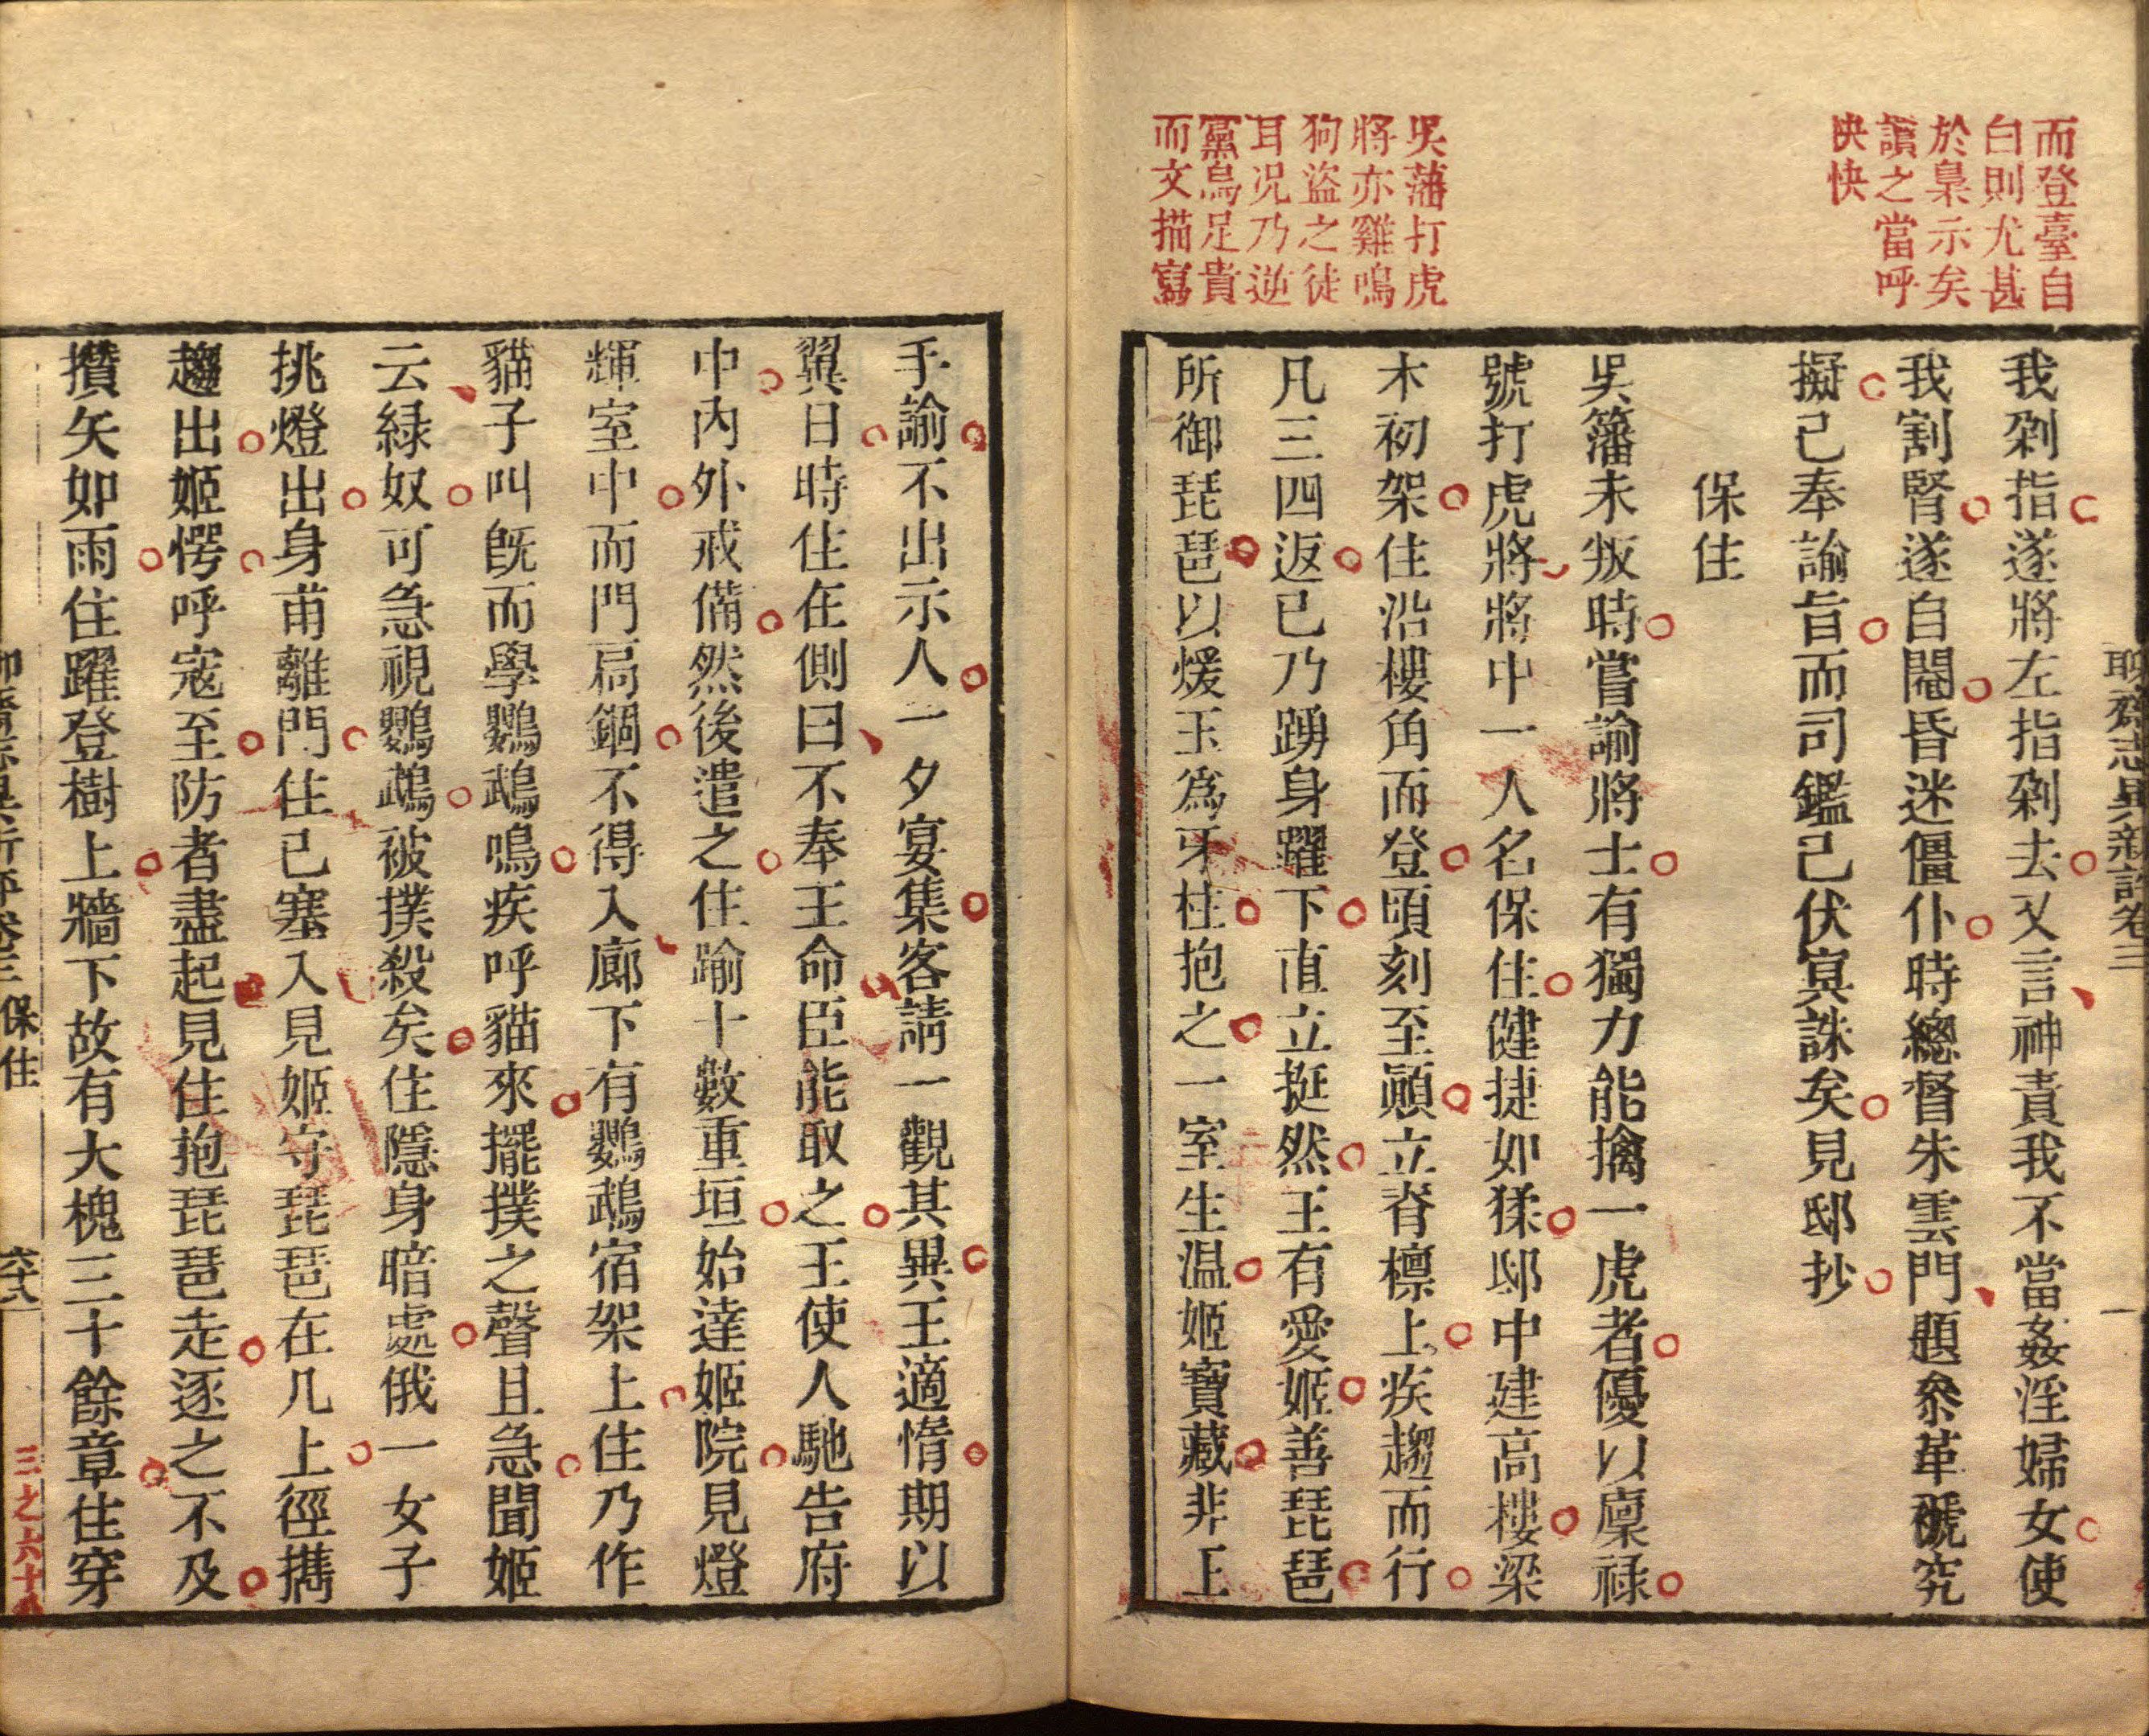 而登臺自
白則尤甚
於梟示矣
讀之當呼
快快
吳藩打虎
將亦雞鳴
狗盜之徒
耳况乃逆
黨烏足貴
而文描寫
聊齋志異新評卷三
一
我剁指遂將左指剁去又言神責我不當姦淫婦女使
我割腎遂自閹昏迷僵仆時總督朱雲門題叅革褫究
擬己奉諭旨而司鑑已伏冥誅矣見邸抄
保住
吳籓未叛時嘗諭將士有獨力能擒一虎者優以廩祿
號打虎將將中一人名保住健捷如猱邸中建高樓梁
木初架住沿樓角而登頃刻至顚立脊檩上疾趨而行
凡三四返已乃踴身躍下直立挺然王有愛姬善琵琶
所御琵琶以煖玉爲牙柱抱之一室生温姬寶藏非王
手諭不出示人一夕宴集客請一觀其異王適惰期以
翼日時住在側曰不奉王命臣能取之王使人馳告府
中內外戒備然後遣之住踰十數重垣始達姬院見燈
輝室中而門扃錮不得入廊下有鸚鵡宿架上住乃作
貓子叫旣而學鸚鵡鳴疾呼貓來擺撲之聲且急聞姬
云緑奴可急視鸚鵡被撲殺矣住隱身暗處俄一女子
挑燈出身甫離門住已塞入見姬守琵琶在几上徑攜
趨出姬愕呼寇至防者盡起見住抱琵琶走逐之不及
攢矢如雨住躍登樹上牆下故有大槐三十餘章住穿
聊齋志異新評卷三 保住
六十八
三之六十八